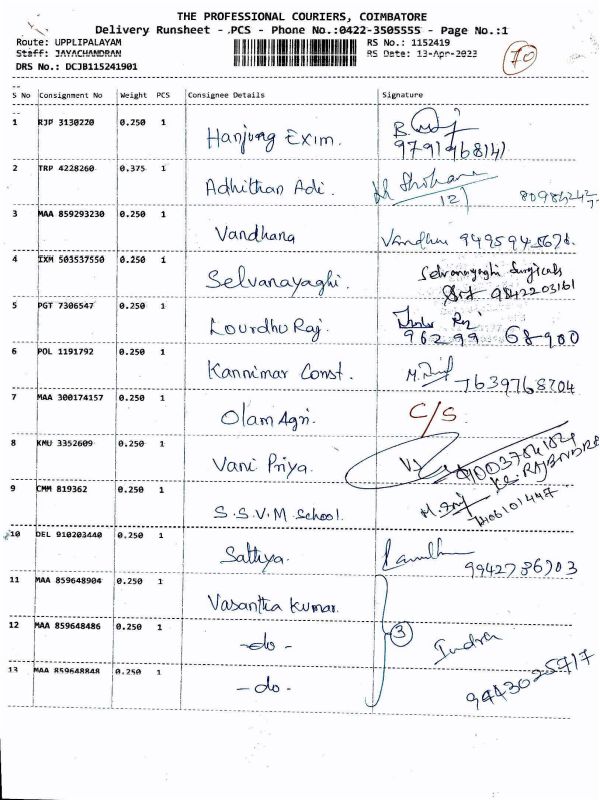 THE PROFESSIONAL COURIERS, COIMBATORE
Delivery Runsheet - PCS - Phone No.:0422-3505555 - Page No.:1
Route: UPPLIPALAYAM RS No.: 1152419
Staff: JAYACHANDRAN RS Date: 13-Apr-2023
DRS No.: DCJB115241901
70
S No Consignment No Weight PCS Consignee Details Signature
1 RJP 3130220 0.250 1 Hanjung Exim.
9791968141
2 TRP 4228260 0.375 1 Adhithan Adi.
12)
3 MAA 859293230 0.250 1 Vandhana
4 IXM 503537550 0.250 1 Selvanayaghi. Selvanayaghi Surgicals
9842203161
5 PGT 7306547 0.250 1 Lourdhu Raj.
96299 68900
6 POL 1191792 0.250 1 Kannimar Const. 7639768704
7 MAA 300174157 0.250 1 Olam Agri. C/S.
8 KMU 3352609 0.250 1 Vani Priya.
9 CMM 819362 0.250 1 S.S.V.M School.
10 DEL 910203440 0.250 1 Sathya. 9942736903
11 MAA 859648904 0.250 1 Vasantha Kumar.
12 MAA 859648486 0.250 1 -do- 3 Indra
13 MAA 859648848 0.250 1 -do- 9443025717